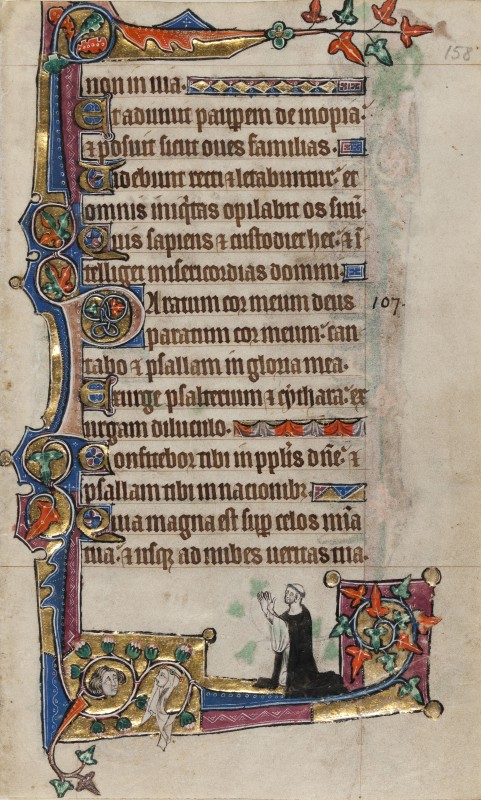 158
non in uia.
Et adiuuit paupem de inopia:
⁊ posuit sicut oues familias.
Videbunt recti ⁊ letabuntur: et
omnis iniqitas opilabit os suu.
Quis sapiens ⁊ custodiet hec: ⁊ ī
telliget misericordias domini.
Paratum cor meum deus 107.
paratum cor meum: can
tabo ⁊ psallam in gloria mea.
Exurge psalterium ⁊ cythara: ex
urgam diluculo.
Confitebor tibi in pplis dn̄e: ⁊
psallam tibi in nacionibꝫ.
Quia magna est sup celos mīa
tua: ⁊ usqꝫ ad nubes ueritas tua.